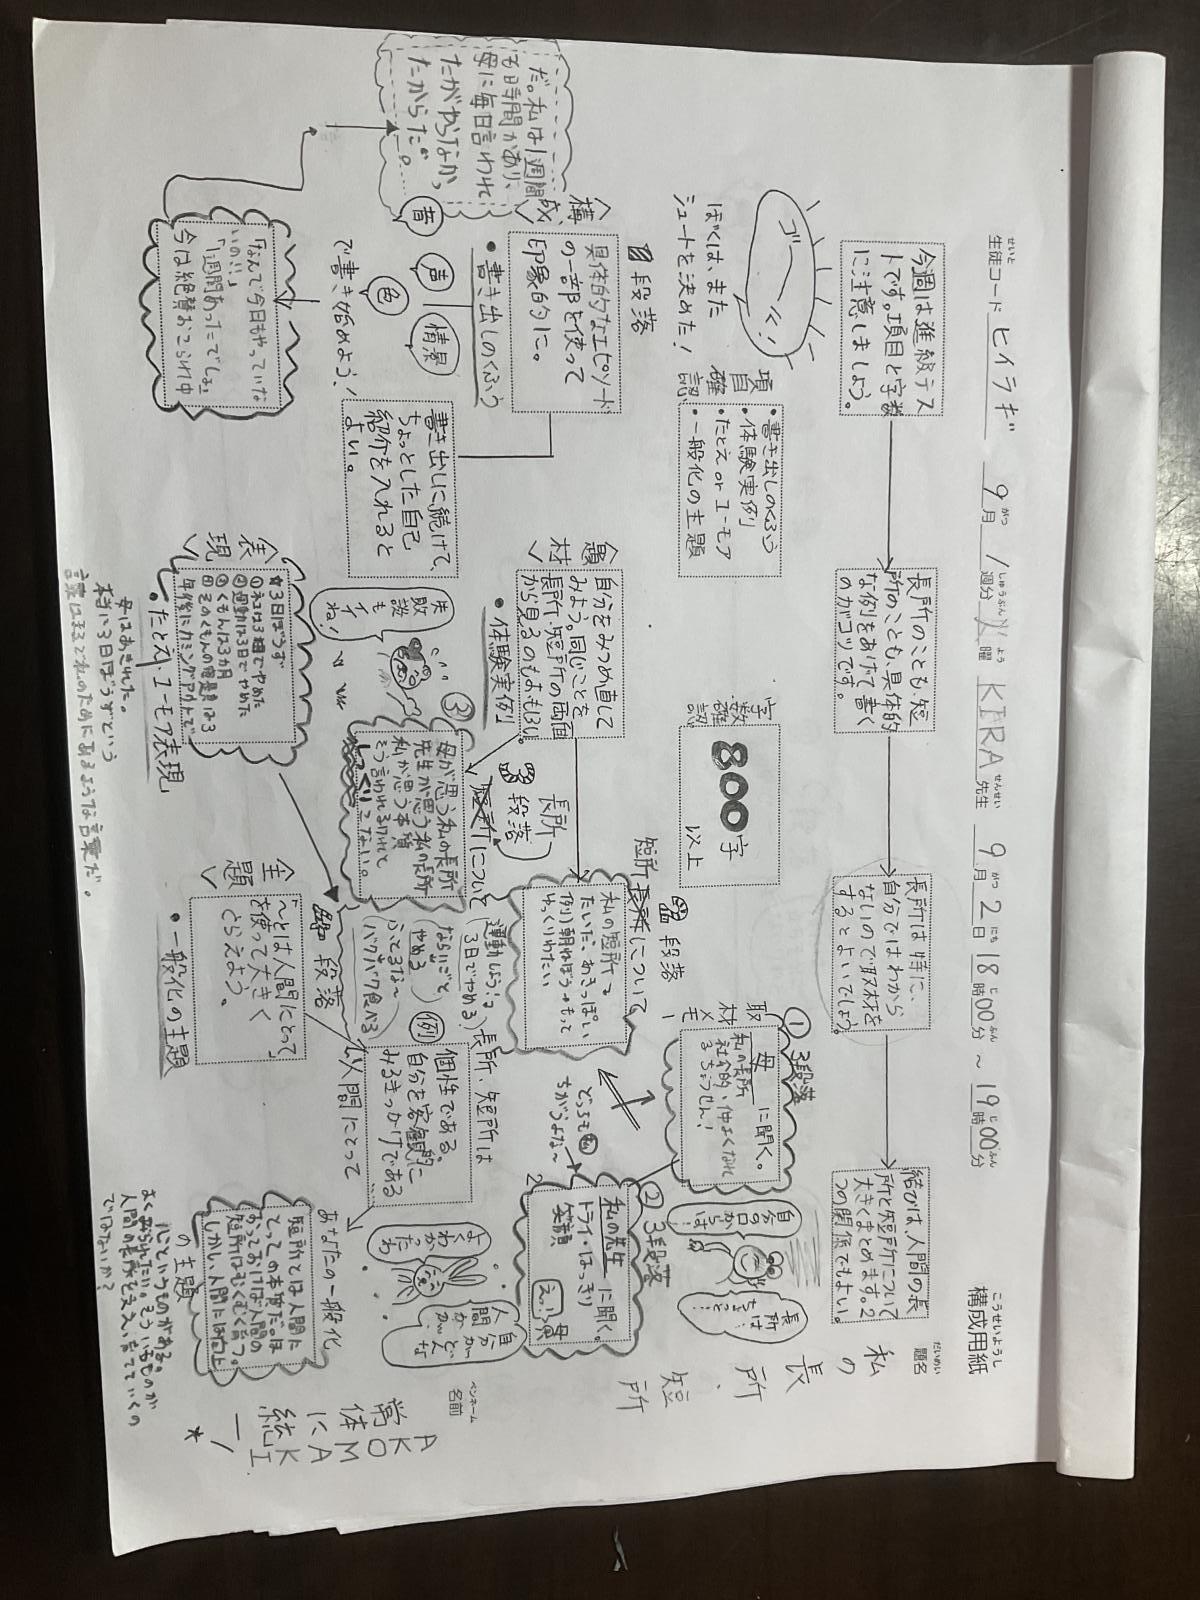 生徒コード ヒイラギ 9月 1週分 火曜 KIRA先生 9月2日 18時00分 ~ 19時00分
せいと がつ しゅうぶん よう せんせい がつ にち じ ふん じ ぷん
構成用紙
こうせいようし
題名
だいめい
私の
長所、
短所
ペンネーム
名前
今週は進級テス
トです。項目と字数
に注意しましょう。
長所のことも、短
所のことも、具体的
な例をあげて書く
のがコツです。
長所は時に、
自分ではわから
ないので取材を
するとよいでしょう。
結びは、人間の長
所と短所について
大きくまとめます。2
つの関係でもよい。
ゴーーール!
ぼくは、また
シュートを決めた!
項目
確認
・書き出しのくふう
・体験実例
・たとえ or ユーモア
・一般化の主題
字数
確認
800字
以上
取材
メモ
① 3段落
母に聞く。
私の長所
② 3段落
自分の口
からは…
長所は
ちょっと…
私の先生に聞く。
トライ・はっきり
笑顔
どっちも
ちがうよな~
段落
〈構成〉
具体的なエピソード
の一部を使って
印象的に。
・書き出しのくふう
音
声
色
情景
で書き始めよう!
書き出しに続けて、
ちょっとした自己
紹介を入れると
よい。
だ。私は1週間
も時間があり、
母に毎日言われ
たがやらなかっ
たからだ。
「なんで今日もやっていな
いの!!」
「1週間あったでしょ」
今は絶賛おこられ中
〈題材〉
自分をみつめ直して
みよう。同じことを
長所、短所の両面
から見るのもおもしろい。
・体験実例
失敗
談も
イイ
ね!
長所
段落
短所について
短所
長所について
段落
私の短所って
だいたい、あきっぽい
例)朝ねぼう→もって
ゆっくりねたい
③
母が思う私の長所
先生が思う私の長所
私が思う本質
そう言われるけれど
しっくりこない。
運動しよう!→
3日でやめる
ならいごと
やめる
ふとるな~
バクバク食べる
〈表現〉
★3日ぼうず
②運動は3日でやめた
③くもんは3カ月
年後にカミングアウトで
・たとえ、ユーモア表現
母はあきれた。
本当に3日ぼうずという
言葉はまるで私のためにあるような言葉だ。
〈主題〉
「~とは人間にとって」
を使って大きく
とらえよう。
・一般化の主題
段落
例
長所、短所は
個性である。
自分を客観的に
みるきっかけである
人間にとって
よく
わかっ
たわ
自分が
どんな
人間
か
あなたの一般化
の主題
短所とは人間に
とっての本質だ。ほ
おっておけば人間の
短所はむくむく育つ。
しかし、人間には向上
心というものがある。
よくみられたい。そういうものが
人間の長所をささえ、育てていくの
ではないか?